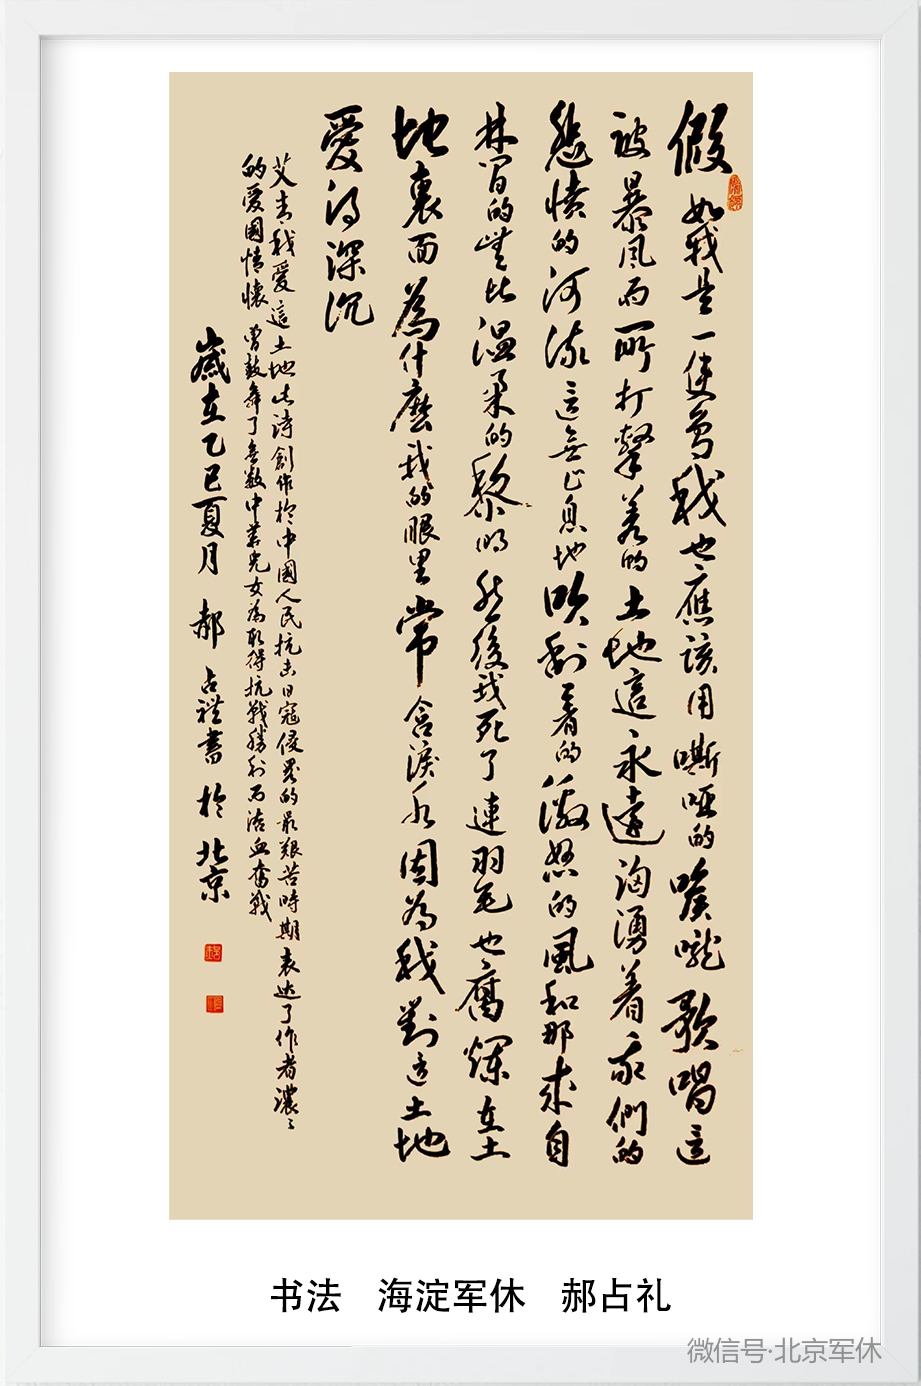 假如我是一隻鳥我也應該用嘶啞的喉嚨歌唱這
被暴風雨所打擊着的土地這永遠洶湧着我們的
悲憤的河流這無止息地吹刮着的激怒的風和那來自
林間的無比温柔的黎明然後我死了連羽毛也腐爛在土
地裏面為什麼我的眼里常含淚水因為我對這土地
愛得深沉
艾青我愛這土地此詩創作於中國人民抗击日寇侵畧的最艱苦時期表达了作者濃〻
的爱國情懷曾鼓舞了無数中華兒女為取得抗戰勝利而浴血奮戰
歲在乙巳夏月 郝占禮書於北京
书法 海淀军休 郝占礼
微信号·北京军休